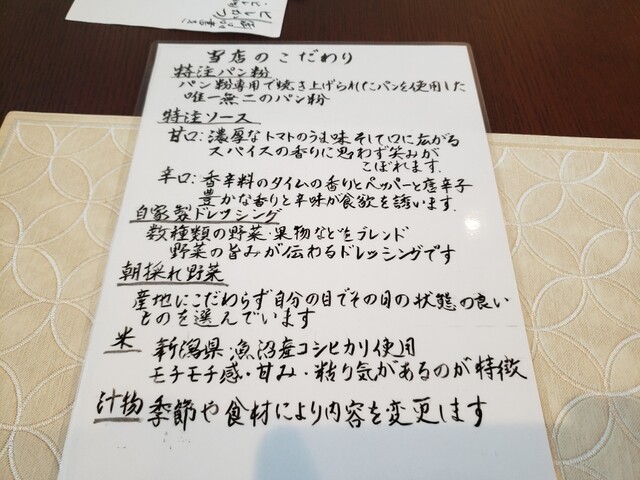 当店のこだわり
特注パン粉
パン粉専用で焼き上げられたパンを使用した
唯一無二のパン粉
特注ソース
甘口:濃厚なトマトのうま味そして口に広がる
スパイスの香りに思わず笑みが
こぼれます.
辛口:香辛料のタイムの香りとペッパーと唐辛子
豊かな香りと辛味が食欲を誘います.
自家製ドレッシング
数種類の野菜・果物などをブレンド
野菜の旨みが伝わるドレッシングです
朝採れ野菜
産地にこだわらず自分の目でその日の状態の良い
ものを選んでいます
米 新潟県・魚沼産コシヒカリ使用
モチモチ感・甘み・粘り気があるのが特徴
汁物 季節や食材により内容を変更します